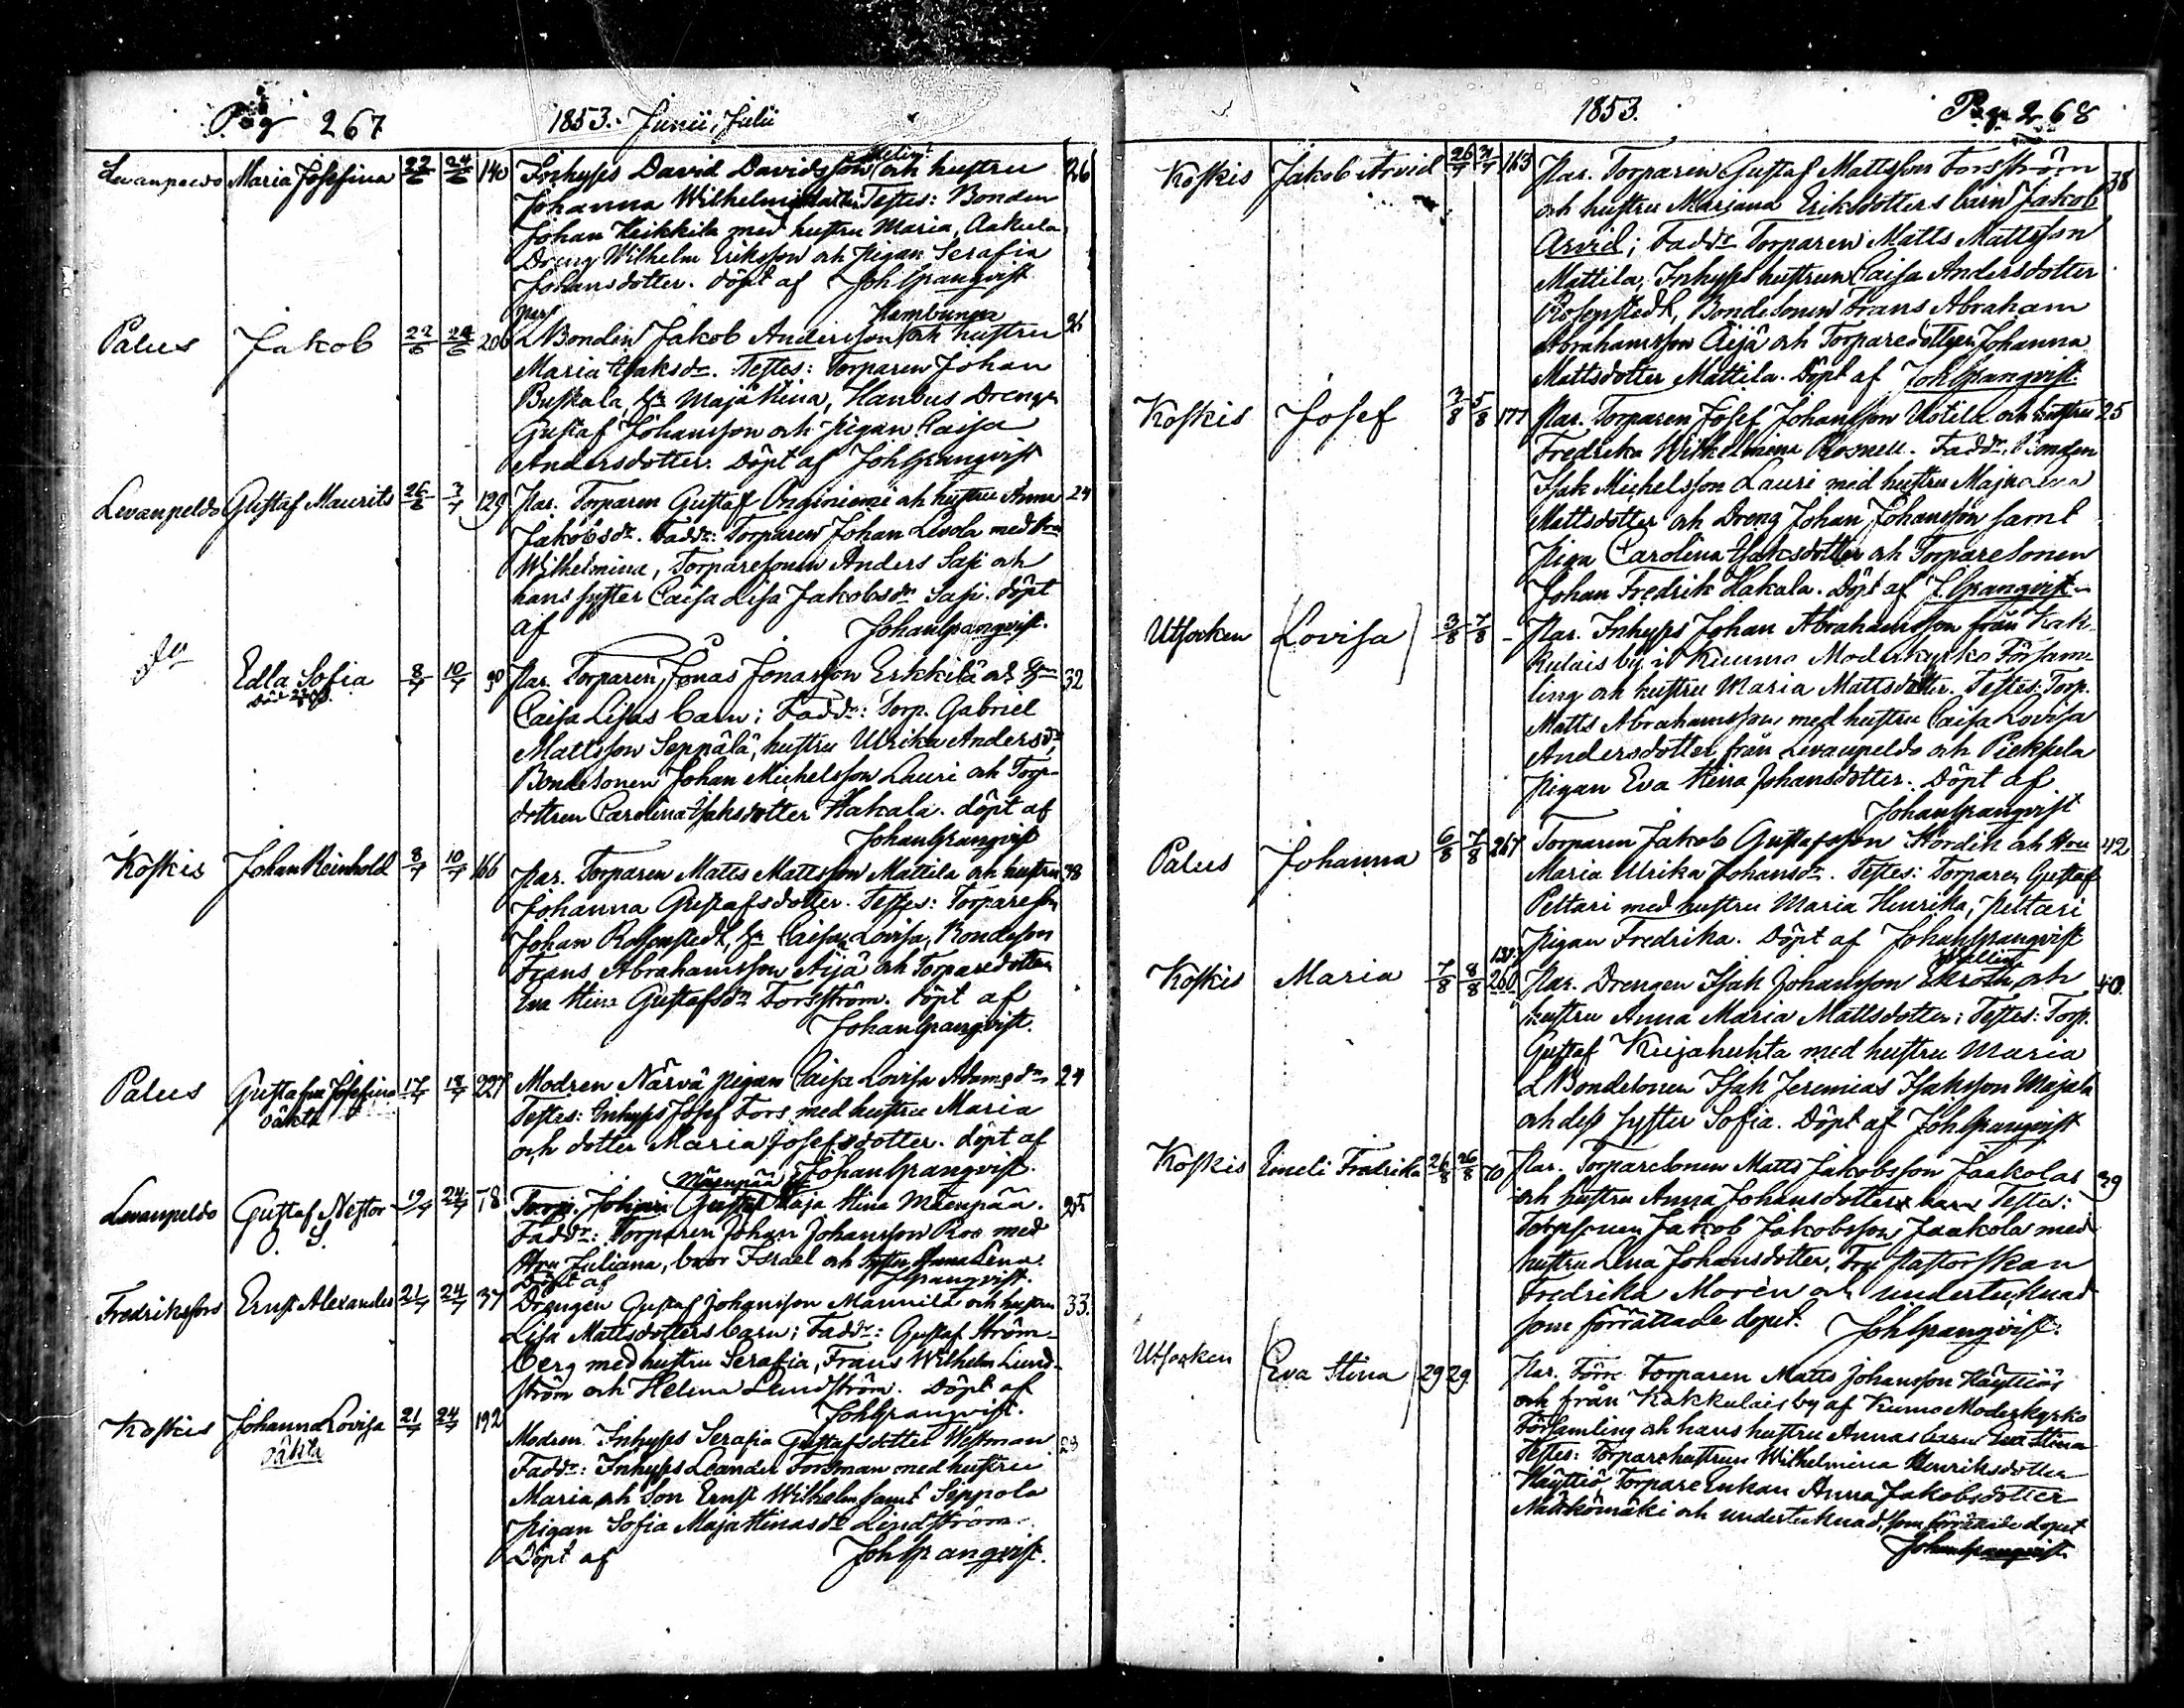 Pag 267
1853. Junii, Julii
Levanpeldo Maria Josefina 22/6 24/6 140 Inhyses David Davidsson och hustru 26
Johanna Wilhelmina Testes: Bonden
Johan Heikkila med hustru Maria, Aakula
Dreng Wilhelm Eriksson och Pigan Serafia
Johansdotter. Döpt af Joh Granqvist
Kambunga
Palus Jakob 22/6 24/6 206 Bonden Jakob Andersson och hustru 36
Maria Isaksdr. Testes: Torparen Johan
Buskala, Hu Maja Stina, Hanbus Drengen
Gustaf Johansson och Pigan Caisa
Andersdotter. Döpt af Joh Granqvist
Levanpeldo Gustaf Maurits 26/6 3/7 129 Par. Torparen Gustaf Onginiemi och hustru Anna 24
Jakobsdr. Faddr: Torparen Johan Levola med Hru
Wilhelmina, Torparesonen Anders Sasi och
hans syster Caisa Lisa Jakobsdr Sasi. döpt
af Johan Granqvist.
Do Edla Sofia 8/7 10/7 90 Par. Torparen Jonas Jonasson Erkkilä och Hu 32
Död
Caisa Lisas barn; Faddr: Torp. Gabriel
Mattsson Seppälä, hustru Ulrika Andersdr,
Bondesonen Johan Michelsson Lauri och Torp-
dottren Carolina Isaksdotter Hakala. döpt af
Johan Granqvist
Koskis Johan Reinhold 8/7 10/7 166 Par. Torparen Matts Mattsson Mattila och hustru 38
Johanna Gustafsdotter. Testes: Torpareson
Johan Rosenstedt, Hu Caisa Lovisa, Bondeson
Frans Abrahamsson Äijä och Torparedotter
Eva Stina Gustafsdr Forsström. Döpt af
Johan Granqvist.
Palus Gustafva Josefina 17/7 18/7 227 Modren Närvä Pigan Caisa Lovisa Adamsdr 24
oäkta Testes: Inhyses Josef Fors med hustru Maria
och dotter Maria Josefsdotter. döpt af
Johan Granqvist.
Mäenpää
Levanpeldo Gustaf Nestor 19/7 24/7 78 Torp. Johan Gustaf Maja Stina Mäenpää. 25
Faddr: Torparen Johan Johansson Roo med
Hru Juliana, bror Israel och syster Anna Lena.
Döpt af Granqvist.
Fredriksfors Ernst Alexander 21/7 24/7 37 Drengen Gustaf Johansson Mannila och hustru 33
Lisa Mattsdotters barn; Faddr: Gustaf Ström-
berg med hustru Serafia, Frans Wilhelm Lund-
ström och Helena Lundström. Döpt af
Joh Granqvist.
Koskis Johanna Lovisa 21/7 24/7 192 Modren Inhyses Serafia Gustafsdotter Westman 23
oäkta Faddr: Inhyses Leander Forsman med hustru
Maria och Son Ernst Wilhelm samt Seppola
Pigan Sofia Maja Stinasdr Lindström.
Döpt af Joh Granqvist.
1853. Pag. 268
Koskis Jakob Arvid 26/7 163 Par. Torparen Gustaf Mattsson Forsström 38
och hustru Marjana Eriksdotters barn Jakob
Arvid; Faddr Torparen Matts Mattsson
Mattila, Inhyses hustrun Caisa Andersdotter
Rosenstedt, Bondesonen Frans Abraham
Abrahamsson Äijä och Torparedottren Johanna
Mattsdotter Mattila. Döpt af Joh Granqvist.
Koskis Josef 3/8 5/8 177 Par. Torparen Josef Johansson Uotila och hustru 25
Fredrika Wilhelmina Rosnell. Faddr, Bonden
Isak Michelsson Lauri med hustru Maja
Mattsdotter och Dreng Johan Johansson samt
Piga Carolina Isaksdotter och Torparesonen
Johan Fredrik Hakala. Döpt af J. Granqvist.
Utsocken (Lovisa) 3/8 7/8 - Par. Inhyses Johan Abrahamsson från Kak-
kulais by i Kumo Moderkyrko Försam-
ling och hustru Maria Mattsdotter. Testes: Torp.
Matts Abrahamsson med hustru Caisa Lovisa
Andersdotter från Levanpeldo och Piekkela
Pigan Eva Stina Johansdotter. Döpt af
Johan Granqvist
Palus Johanna 6/8 7/8 267 Torparen Jakob Gustafsson Nordin och Hru 42
Maria Ulrika Johansdr. Testes: Torparen Gustaf
Peltari med hustru Maria Henrika, Peltari
Pigan Fredrika. Döpt af Johan Granqvist
Koskis Maria 7/8 8/8 260 Par. Drengen Isak Johansson Ekroth och 40
hustru Anna Maria Mattsdotter; Testes: Torp.
Gustaf Kujahuhta med hustru Maria
Bondesonen Isak Jeremias Isaksson Majala
och dess syster Sofia. Döpt af Joh Granqvist
Koskis Emeli Fredrika 26/8 26/8 70 Par. Torparesonen Matts Jakobsson Jaakolas 39
och hustru Anna Johansdotters barn Testes:
Torpsonen Jakob Jakobsson Jaakola med
hustru Lena Johansdotter, Fru Pastorskan
Fredrika Morén och undertecknad
som förrättade dopet. Joh Granqvist.
Utsocken (Eva Stina 29 29 Par. Förre Torparen Matts Johansson Käyttiös
och från Kakkulais by af Kumo Moderkyrko
Församling och hans hustru Annas barn Eva Stina
Testes: Torparehustrun Wilhelmina Henriksdotter
Käyttiö, Torpare Enkan Anna Jakobsdotter
och undertecknad, som förrättade dopet
Johan Granqvist